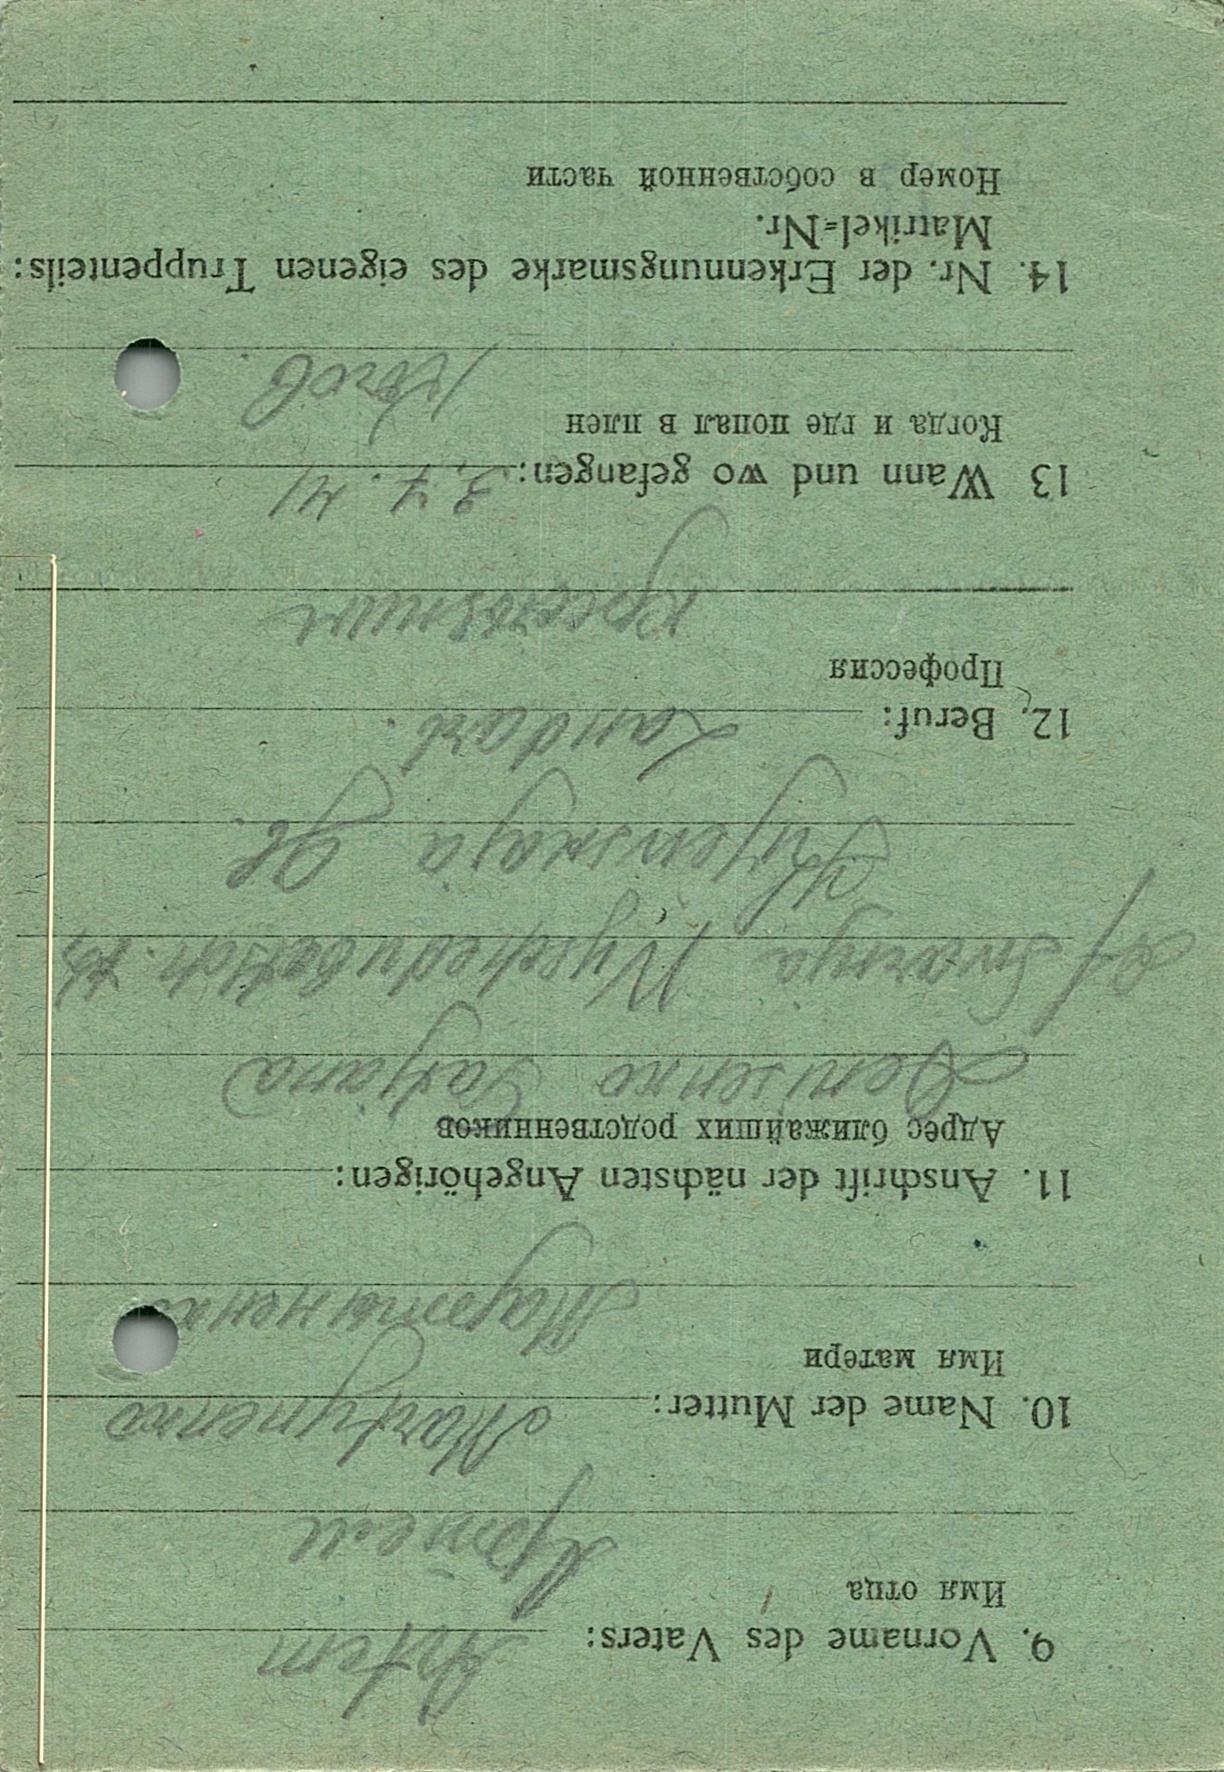 9. Vorname des Vaters: Artem
Имя отца
Артем
10. Name der Mutter: Martynenko
Имя матери
Мартыненко
11. Anschrift der nächsten Angehörigen:
Адрес ближайших родственников
Denisenko Tatjana
Kyjewskaja Gb.
12. Beruf: Landarb.
Профессия
крестьянин
13 Wann und wo gefangen: 3. 7. 41
Когда и где попал в плен
Львов.
14. Nr. der Erkennungsmarke des eigenen Truppenteils:
Matrikel=Nr.
Номер в собственной части